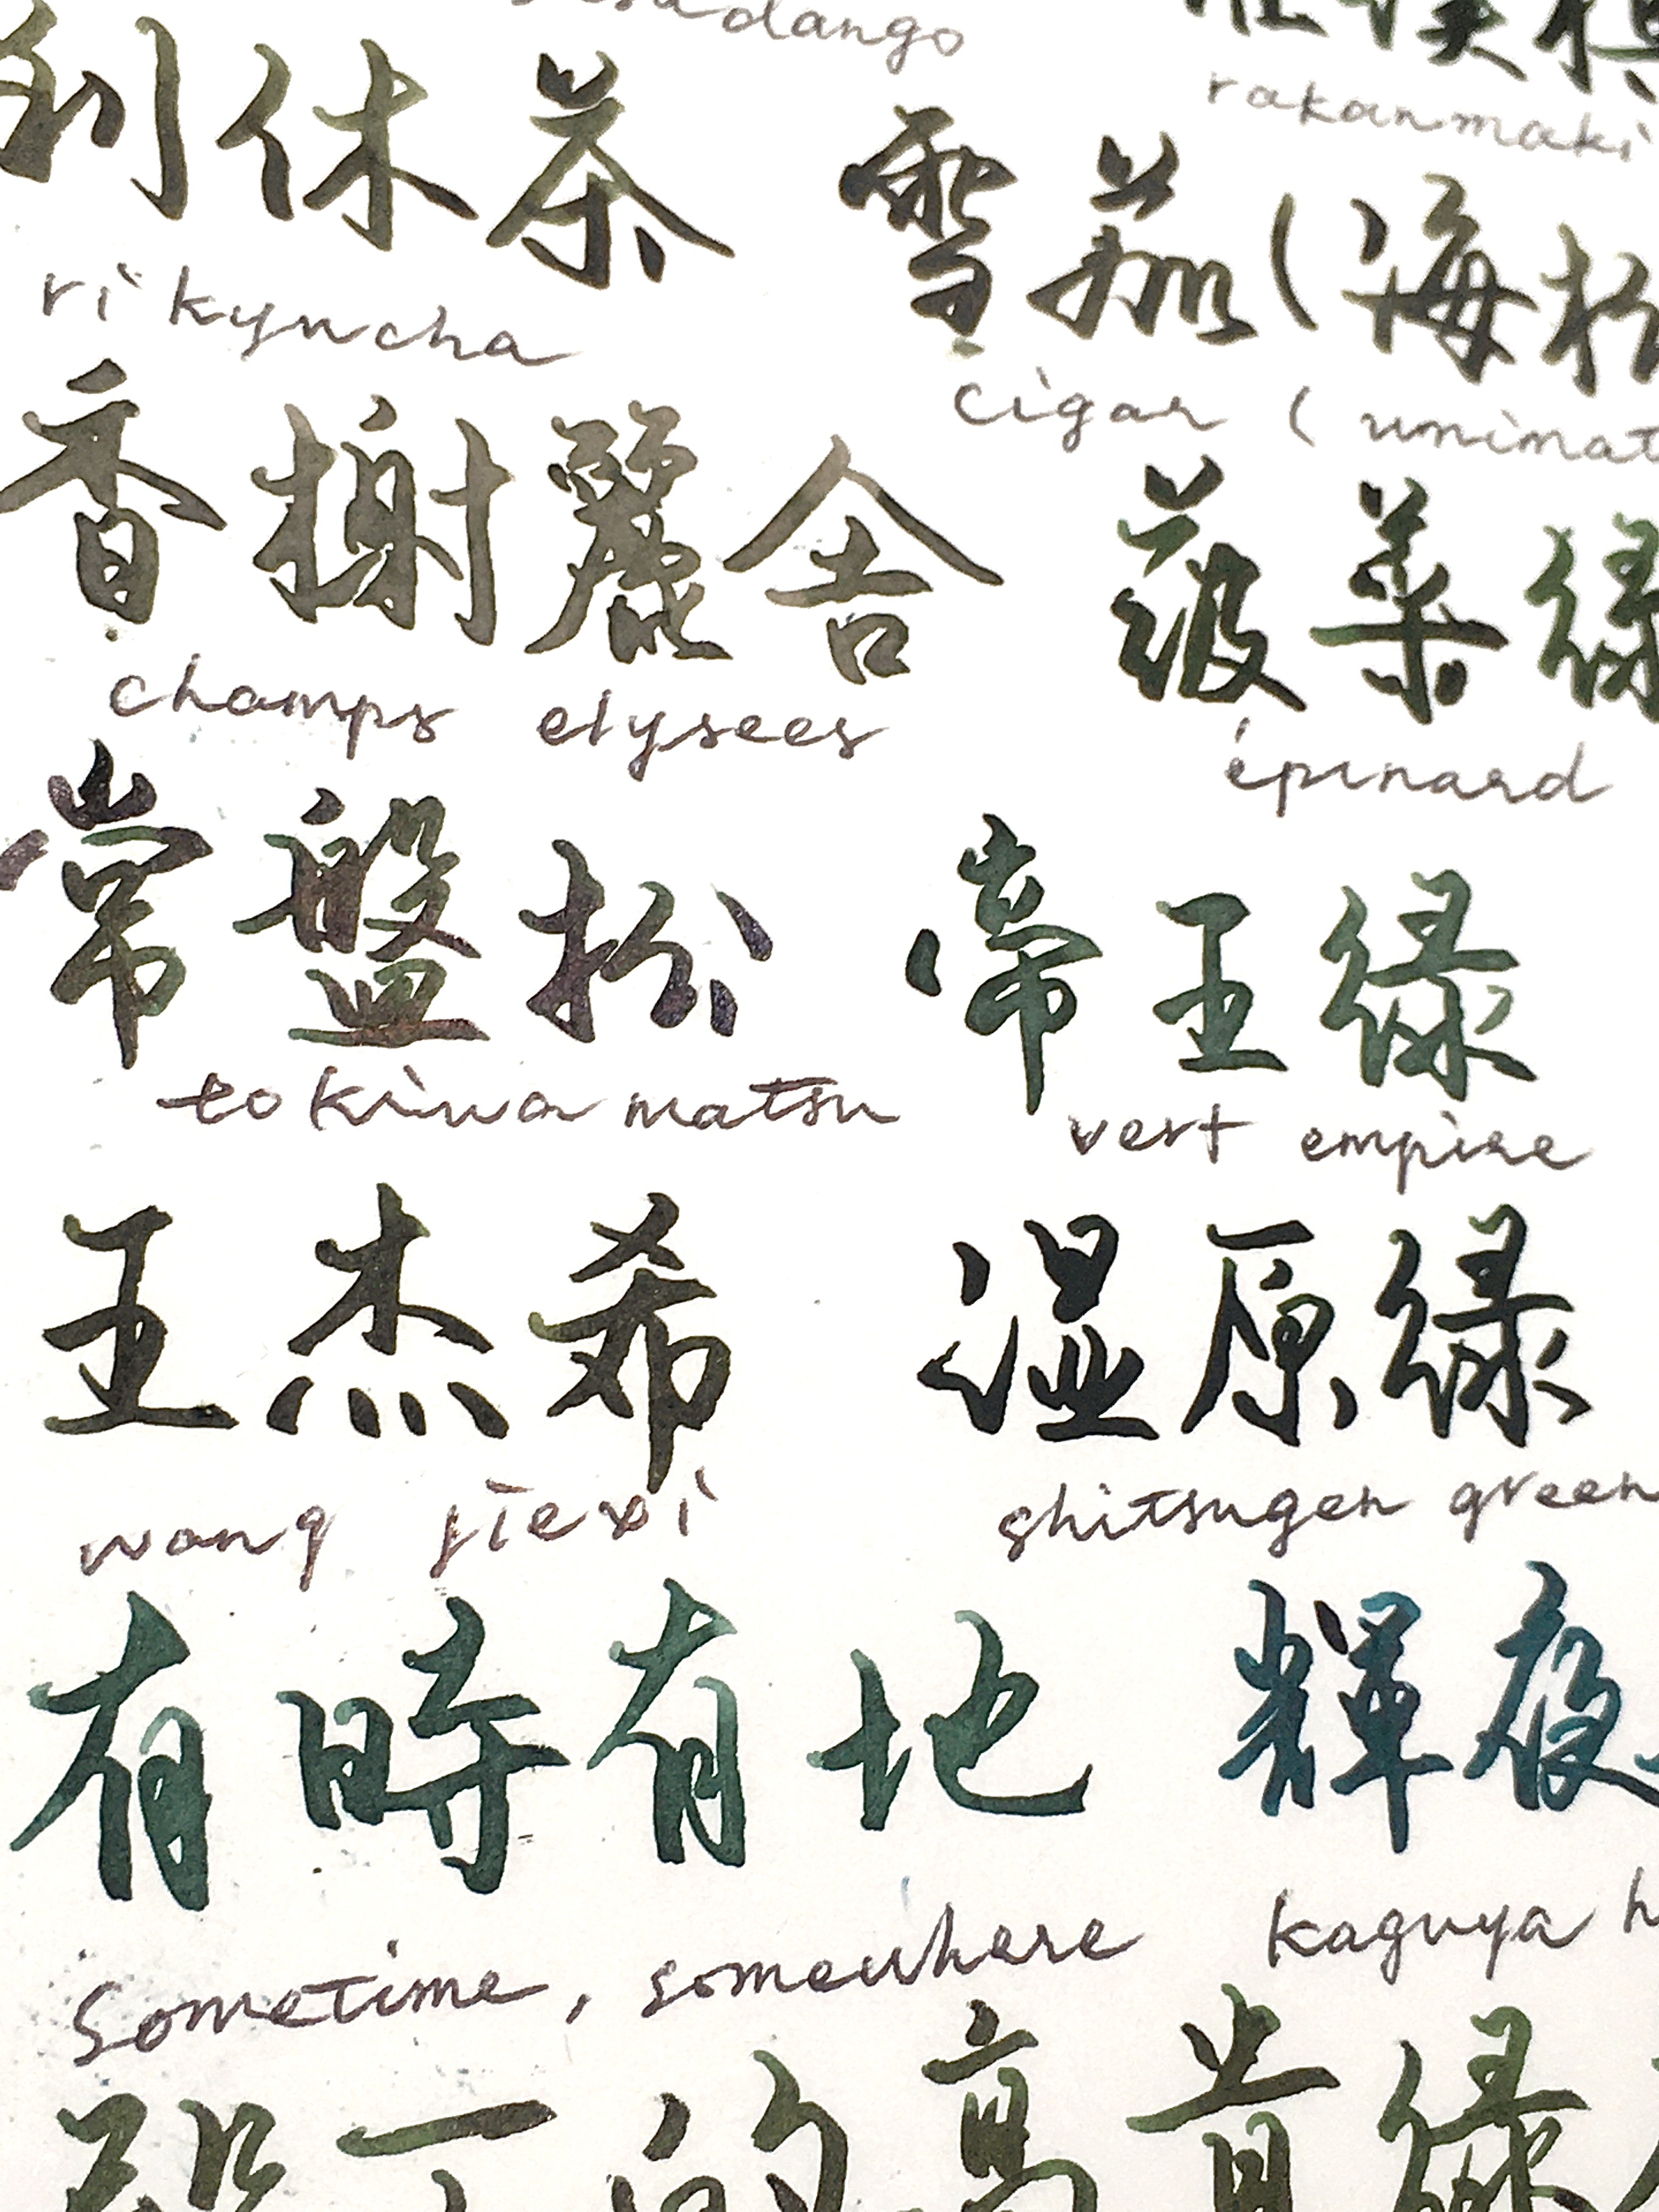 dango
rakanmaki
利休茶
rikyucha
雪茄(海松
cigar (umimat
香榭麗舍
champs elysees
菠菜绿
épinard
常盤松
tokiwa matsu
帝王绿
vert empire
王杰希
wang jiexi
湿原绿
shitsugen green
有時有地
sometime, somewhere
輝夜
kaguya h
的高貴绿